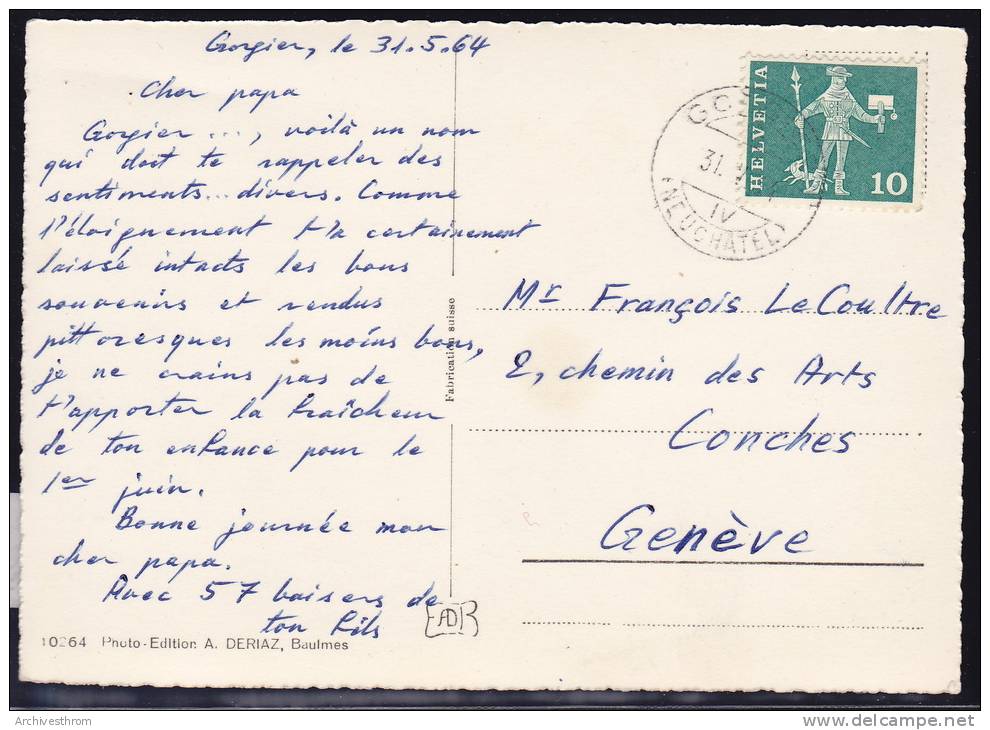 Gorgier, le 31.5.64
Cher papa
Gorgier ..., voilà un nom
qui doit te rappeler des
sentiments... divers. Comme
l'éloignement t'a certainement
laissé intacts les bons
souvenirs et rendus
pittoresques les moins bons,
je ne crains pas de
t'apporter la fraîcheur
de ton enfance pour le
1er juin.
Bonne journée mon
cher papa.
Avec 57 baisers de
ton fils
10264 Photo-Edition A. DERIAZ, Baulmes
Fabrication suisse
HELVETIA
10
31.
IV
(NEUCHÂTEL)
Mr François Le Coultre
2, chemin des Arts
Conches
Genève
Archivesthrom
www.delcampe.net